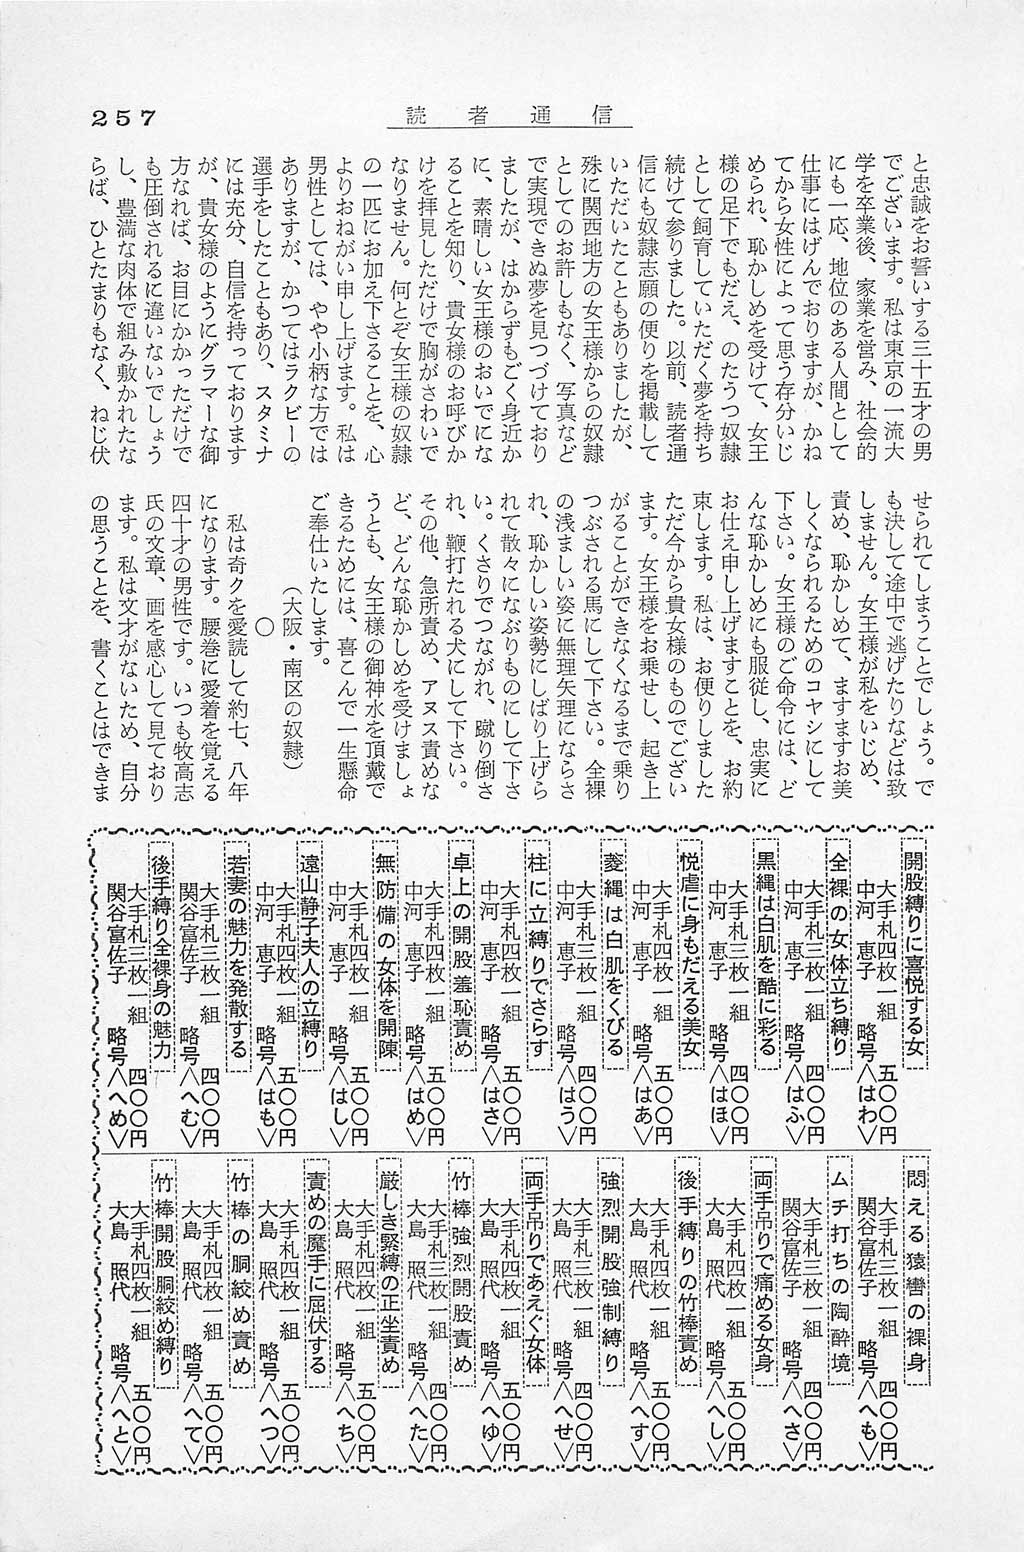 257
読者通信
と忠誠をお誓いする三十五才の男
でございます。私は東京の一流大
学を卒業後、家業を営み、社会的
にも一応、地位のある人間として
仕事にはげんでおりますが、かね
てから女性によって思う存分いじ
められ、恥かしめを受けて、女王
様の足下でもだえ、のたうつ奴隷
として飼育していただく夢を持ち
続けて参りました。以前、読者通
信にも奴隷志願の便りを掲載して
いただいたこともありましたが、
殊に関西地方の女王様からの奴隷
としてのお許しもなく、写真など
で実現できぬ夢を見つづけており
ましたが、はからずもごく身近か
に、素晴しい女王様のおいでにな
ることを知り、貴女様のお呼びか
けを拝見しただけで胸がさわいで
なりません。何とぞ女王様の奴隷
の一匹にお加え下さることを、心
よりおねがい申し上げます。私は
男性としては、やや小柄な方では
ありますが、かつてはラクビーの
選手をしたこともあり、スタミナ
には充分、自信を持っております
が、貴女様のようにグラマーな御
方なれば、お目にかかっただけで
も圧倒されるに違いないでしょう
し、豊満な肉体で組み敷かれたな
らば、ひとたまりもなく、ねじ伏
せられてしまうことでしょう。で
も決して途中で逃げたりなどは致
しません。女王様が私をいじめ、
責め、恥かしめて、ますますお美
しくなられるためのコヤシにして
下さい。女王様のご命令には、ど
んな恥かしめにも服従し、忠実に
お仕え申し上げますことを、お約
束します。私は、お便りしました
ただ今から貴女様のものでござい
ます。女王様をお乗せし、起き上
がることができなくなるまで乗り
つぶされる馬にして下さい。全裸
の浅ましい姿に無理矢理にならさ
れ、恥かしい姿勢にしばり上げら
れて散々になぶりものにして下さ
い。くさりでつながれ、蹴り倒さ
れ、鞭打たれる犬にして下さい。
その他、急所責め、アヌス責めな
ど、どんな恥かしめを受けましょ
うとも、女王様の御神水を頂戴で
きるためには、喜こんで一生懸命
ご奉仕いたします。
（大阪・南区の奴隷）
○
私は奇クを愛読して約七、八年
になります。腰巻に愛着を覚える
四十才の男性です。いつも牧高志
氏の文章、画を感心して見ており
ます。私は文才がないため、自分
の思うことを、書くことはできま
開股縛りに喜悦する女
大手札四枚一組 五〇〇円
中河恵子 略号＜はわ＞
全裸の女体立ち縛り
大手札三枚一組 四〇〇円
中河恵子 略号＜はふ＞
黒縄は白肌を酷に彩る
大手札三枚一組 四〇〇円
中河恵子 略号＜はほ＞
悦虐に身もだえる美女
大手札四枚一組 五〇〇円
中河恵子 略号＜はあ＞
菱縄は白肌をくびる
大手札四枚一組 五〇〇円
中河恵子 略号＜はう＞
柱に立縛りでさらす
大手札四枚一組 五〇〇円
中河恵子 略号＜はさ＞
卓上の開股羞恥責め
大手札四枚一組 五〇〇円
中河恵子 略号＜はめ＞
無防備の女体を開陳
大手札四枚一組 五〇〇円
中河恵子 略号＜はし＞
遠山静子夫人の立縛り
大手札四枚一組 五〇〇円
中河恵子 略号＜はも＞
若妻の魅力を発散する
大手札三枚一組 四〇〇円
関谷富佐子 略号＜へむ＞
後手縛り全裸身の魅力
大手札三枚一組 四〇〇円
関谷富佐子 略号＜へめ＞
悶える猿轡の裸身
大手札三枚一組 四〇〇円
関谷富佐子 略号＜へも＞
ムチ打ちの陶酔境
大手札三枚一組 四〇〇円
関谷富佐子 略号＜へさ＞
両手吊りで痛める女身
大手札四枚一組 五〇〇円
大島照代 略号＜へし＞
後手縛りの竹棒責め
大手札四枚一組 五〇〇円
大島照代 略号＜へす＞
強烈開股強制縛り
大手札三枚一組 四〇〇円
大島照代 略号＜へせ＞
両手吊りであえぐ女体
大手札四枚一組 五〇〇円
大島照代 略号＜へゆ＞
竹棒強烈開股責め
大手札三枚一組 四〇〇円
大島照代 略号＜へた＞
厳しき緊縛の正坐責め
大手札四枚一組 五〇〇円
大島照代 略号＜へち＞
責めの魔手に屈伏する
大手札四枚一組 五〇〇円
大島照代 略号＜へつ＞
竹棒の胴絞め責め
大手札四枚一組 五〇〇円
大島照代 略号＜へて＞
竹棒開股胴絞め縛り
大手札四枚一組 五〇〇円
大島照代 略号＜へと＞